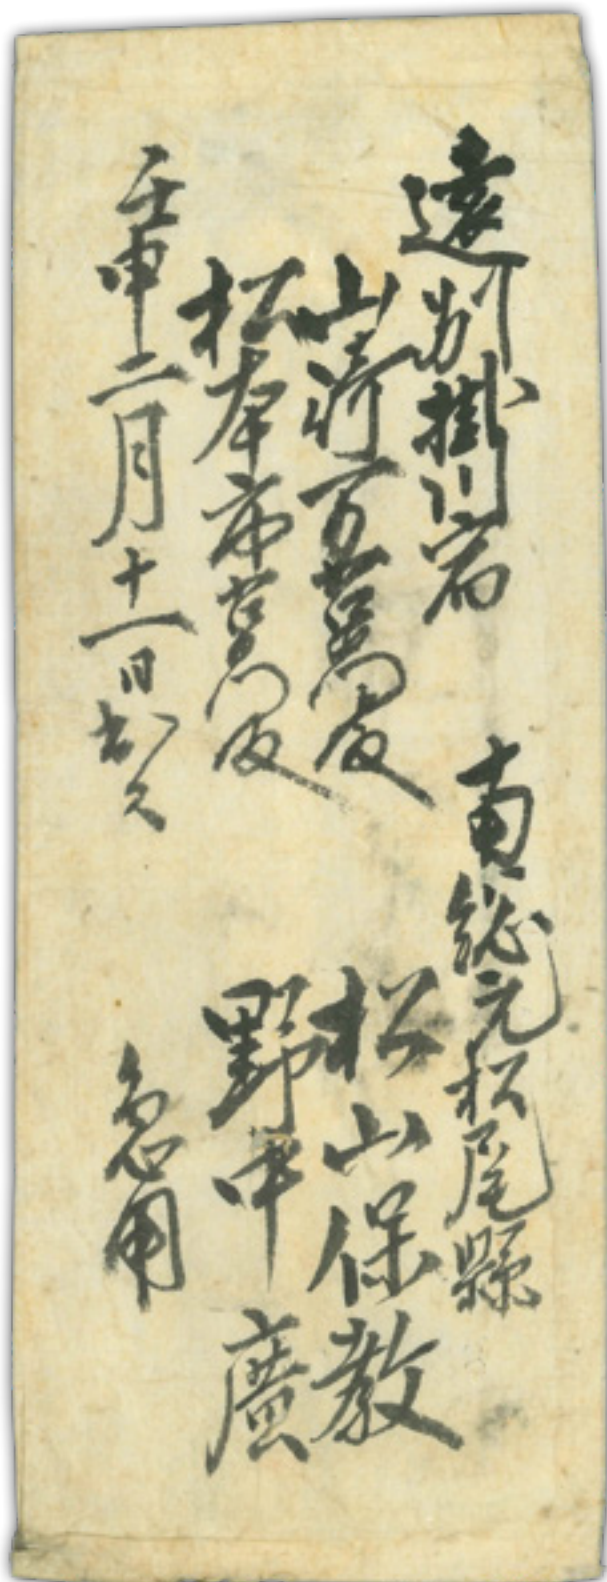 遠州掛川宿
山崎万右衛門殿
松本市右衛門殿
壬申二月十一日出ス
南総元松尾縣
松山保教
野中廣
急用